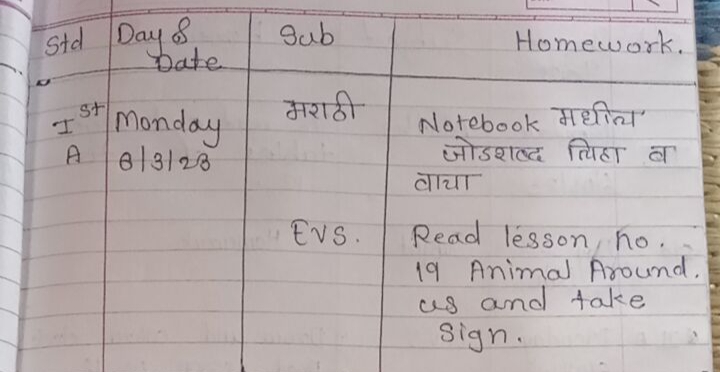 Std Day & Sub Homework.
Date
Ist Monday मराठी Notebook मधील
A 6/3/23 जोडशब्द लिहा व
वाचा
EVS. Read lesson no.
19 Animal Around.
us and take
Sign.